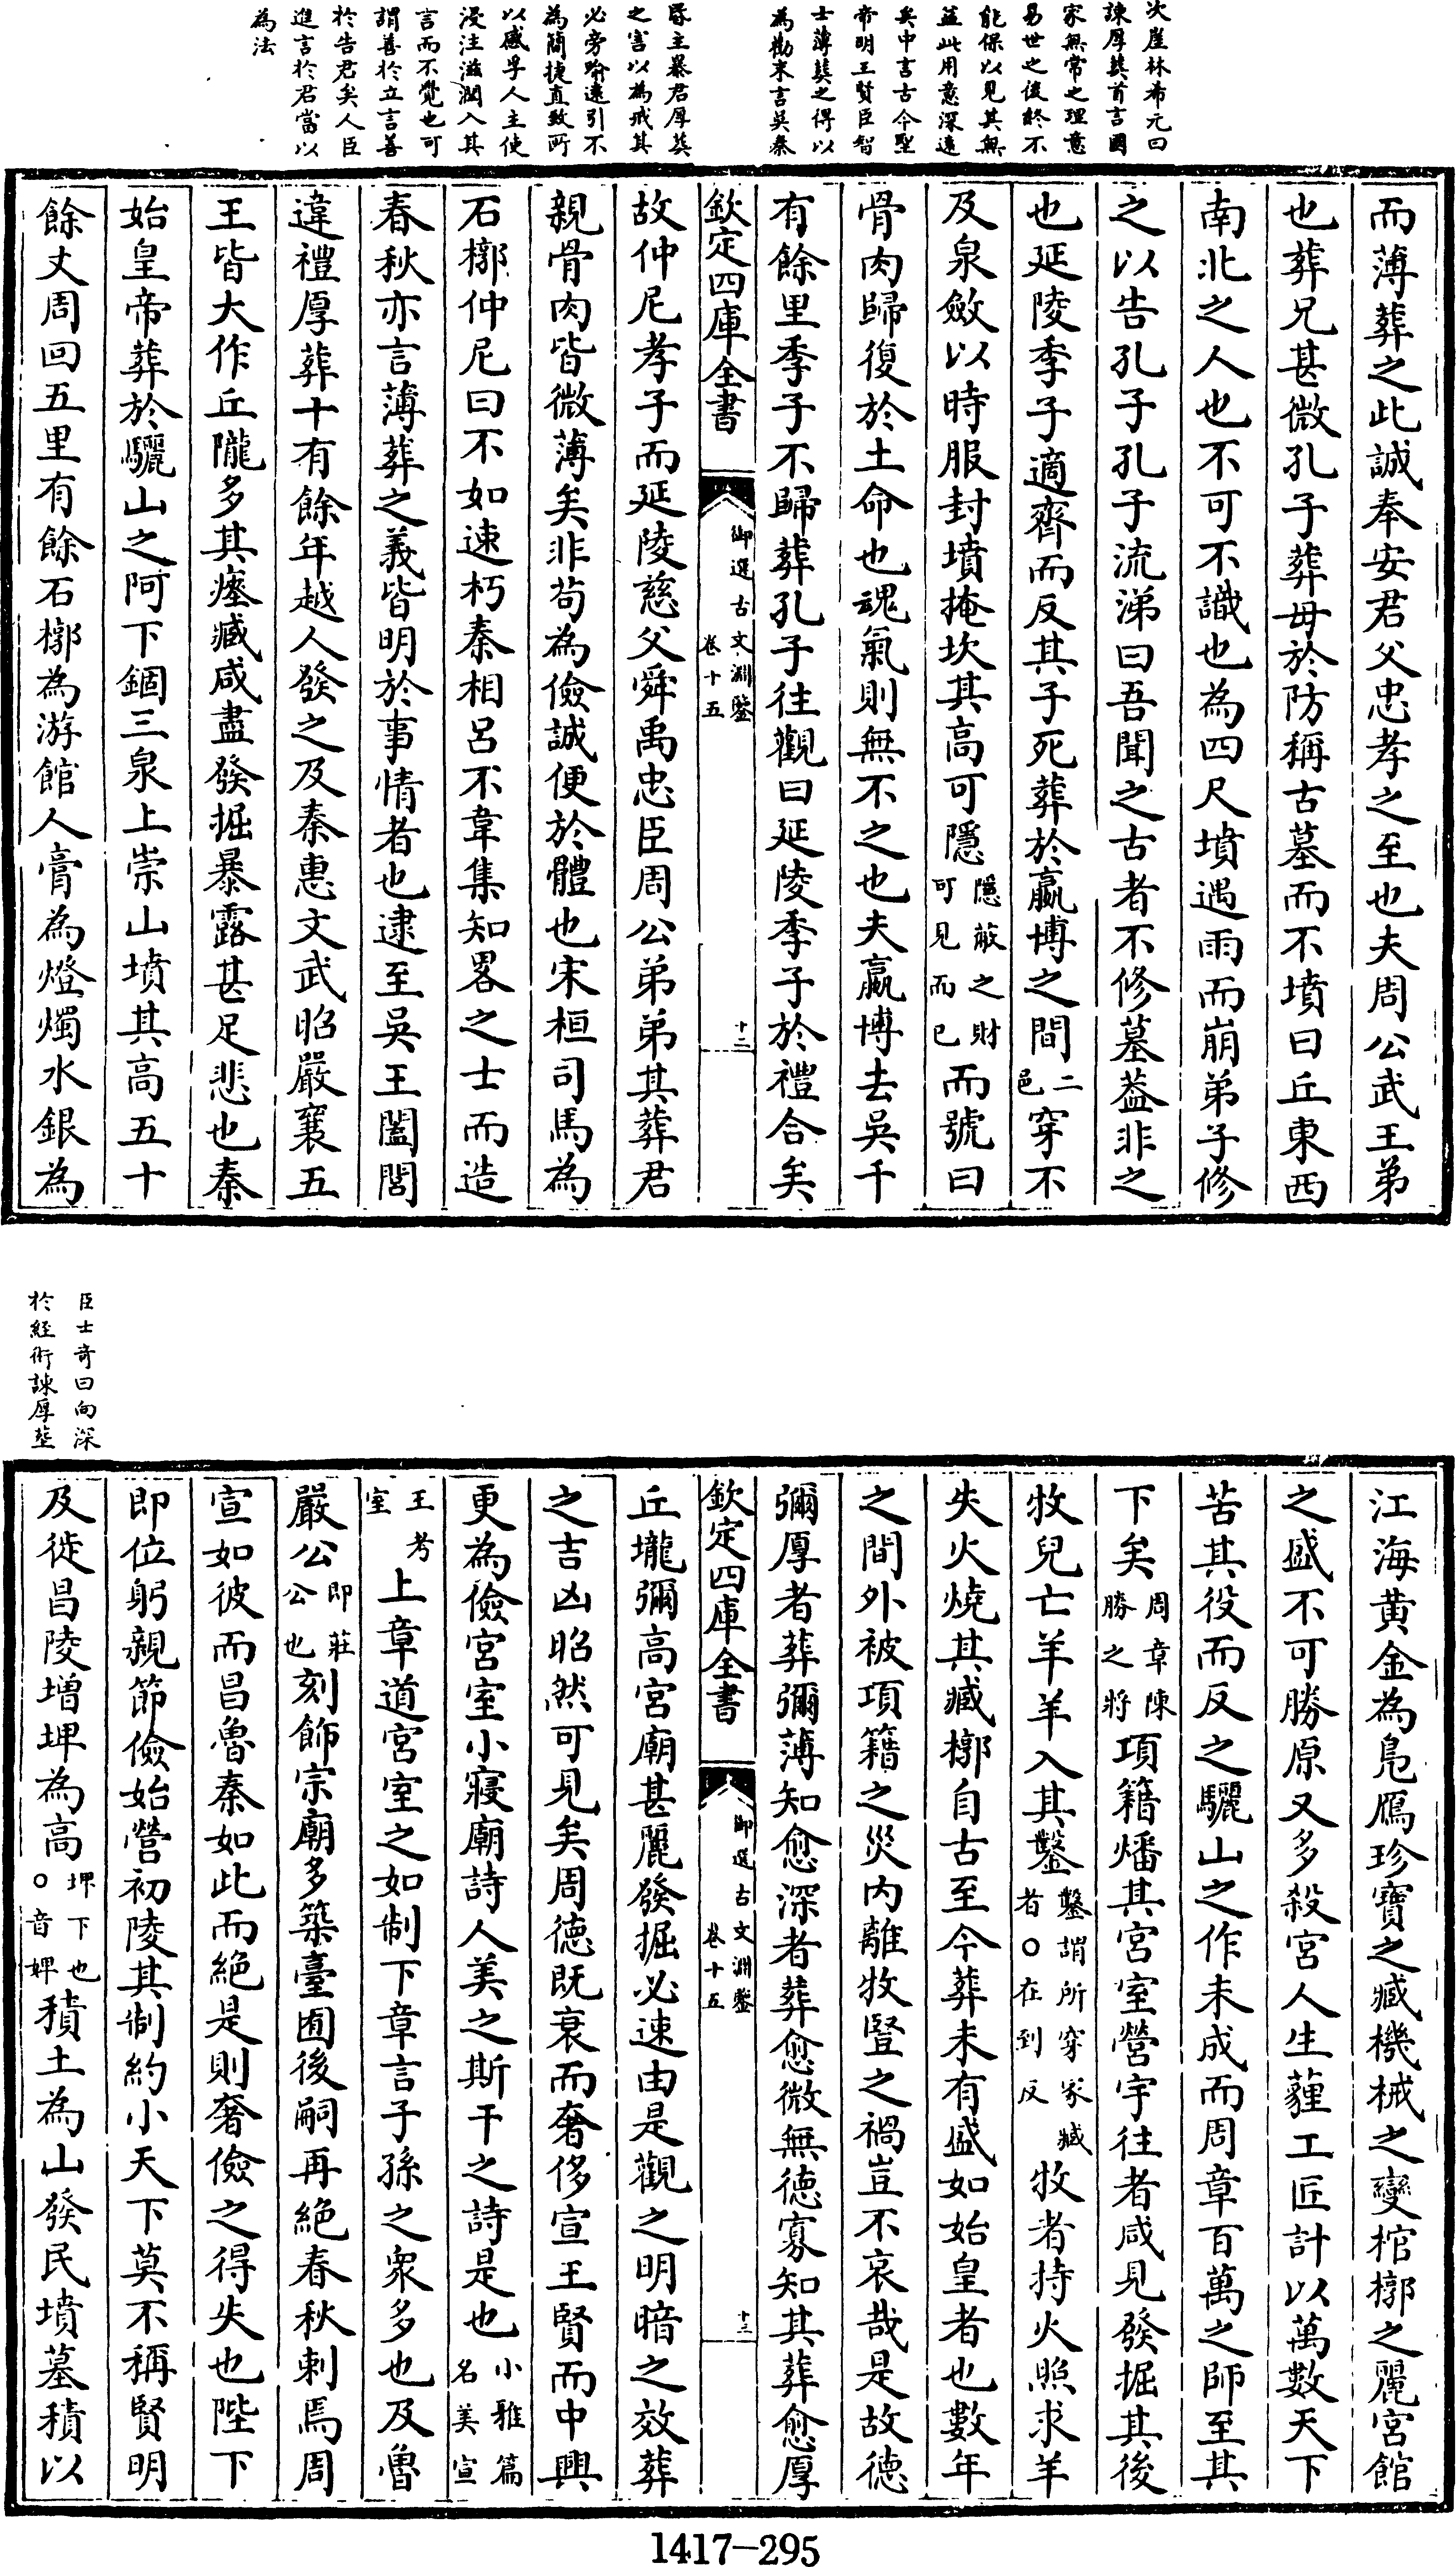 次崖林希元曰
諫厚𦵏首言國
家無常之理意
易世之後終不
能保以見其無
益此用意深遠
矣中言古今聖
帝明王賢臣智
士薄𦵏之得以
為勸末言吳秦
昏主暴君厚葬
之害以為戒其
必旁喻遠引不
為簡捷直致所
以感孚人主使
浸注滋潤入其
言而不覺也可
謂善於立言善
於告君矣人臣
進言於君當以
為法
而薄葬之此誠奉安君父忠孝之至也夫周公武王弟
也葬兄甚微孔子葬母於防稱古墓而不墳曰丘東西
南北之人也不可不識也為四尺墳遇雨而崩弟子修
之以告孔子孔子流涕曰吾聞之古者不修墓葢非之
也延陵季子適齊而反其子死葬於嬴博之間二邑穿不
及泉斂以時服封墳掩坎其高可隱隱蔽之財可見而已而號曰
骨肉歸復於土命也魂氣則無不之也夫嬴博去吳千
有餘里季子不歸葬孔子往觀曰延陵季子於禮合矣
欽定四庫全書
御選古文淵鑒
卷十五
十二
故仲尼孝子而延陵慈父舜禹忠臣周公弟弟其葬君
親骨肉皆微薄矣非苟為儉誠便於體也宋桓司馬為
石槨仲尼曰不如速朽秦相呂不韋集知畧之士而造
春秋亦言薄葬之義皆明於事情者也逮至吳王闔閭
違禮厚葬十有餘年越人發之及秦惠文武昭嚴襄五
王皆大作丘隴多其瘞臧咸盡發掘暴露甚足悲也秦
始皇帝葬於驪山之阿下錮三泉上崇山墳其高五十
餘丈周回五里有餘石槨為游館人膏為燈燭水銀為
臣士奇曰向深
於經術諫厚塟
江海黃金為鳧鴈珍寶之臧機械之變棺槨之麗宮館
之盛不可勝原又多殺宮人生薶工匠計以萬數天下
苦其役而反之驪山之作未成而周章百萬之師至其
下矣周章陳勝之將項籍燔其宮室營宇往者咸見發掘其後
牧兒亡羊羊入其鑿鑿謂所穿冢臧者○在到反牧者持火照求羊
失火燒其臧槨自古至今葬未有盛如始皇者也數年
之間外被項籍之災內離牧豎之禍豈不哀哉是故德
彌厚者葬彌薄知愈深者葬愈微無德寡知其葬愈厚
欽定四庫全書
御選古文淵鑒
卷十五
十三
丘壠彌高宮廟甚麗發掘必速由是觀之明暗之效葬
之吉凶昭然可見矣周德既衰而奢侈宣王賢而中興
更為儉宮室小寢廟詩人美之斯干之詩是也小雅篇名美宣
王考室上章道宮室之如制下章言子孫之衆多也及魯
嚴公即莊公也刻飾宗廟多築臺囿後嗣再絕春秋刺焉周
宣如彼而昌魯秦如此而絕是則奢儉之得失也陛下
即位躬親節儉始營初陵其制約小天下莫不稱賢明
及徙昌陵增埤為高埤下也○音婢積土為山發民墳墓積以
1417-295